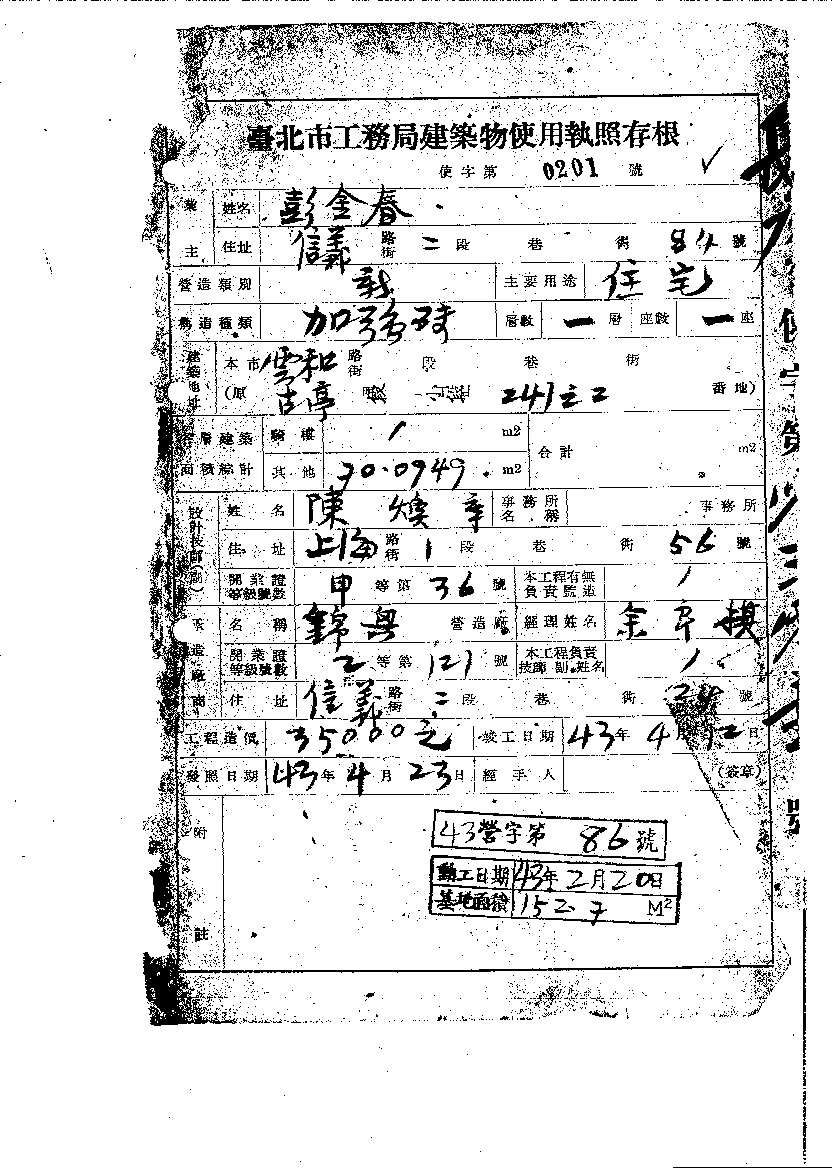 臺北市工務局建築物使用執照存根
使字第 0201 號
業主 姓名 彭金春
住址 信義 路街 二 段 巷 衖 84 號
營造類別 新 主要用途 住宅
構造種類 加强磚 層數 一 層 座數 一 座
建築地址 本市 雲和 路街 段 巷 衖
(原 古亭 段 241之2 番地)
層建築面積綜計 騎樓 / m2 合計 m2
其他 70.0949 m2
設計技師(副) 姓名 陳煥章 事務所名稱 事務所
住址 上海 路街 1 段 巷 衖 56 號
開業證等級號數 甲 等第 36 號 本工程有無負責監造 /
營造廠商 名稱 錦興 營造廠 經理姓名 余阜模
開業證等級號數 乙 等第 121 號 本工程負責技師(副)姓名 /
住址 信義 路街 二 段 巷 衖 號
工程造價 35000元 竣工日期 43年 4月 12日
發照日期 43年 4月 23日 經手人 (簽章)
附註
43營字第 86號
動工日期 43年2月20日
基地面積 152.7 M²